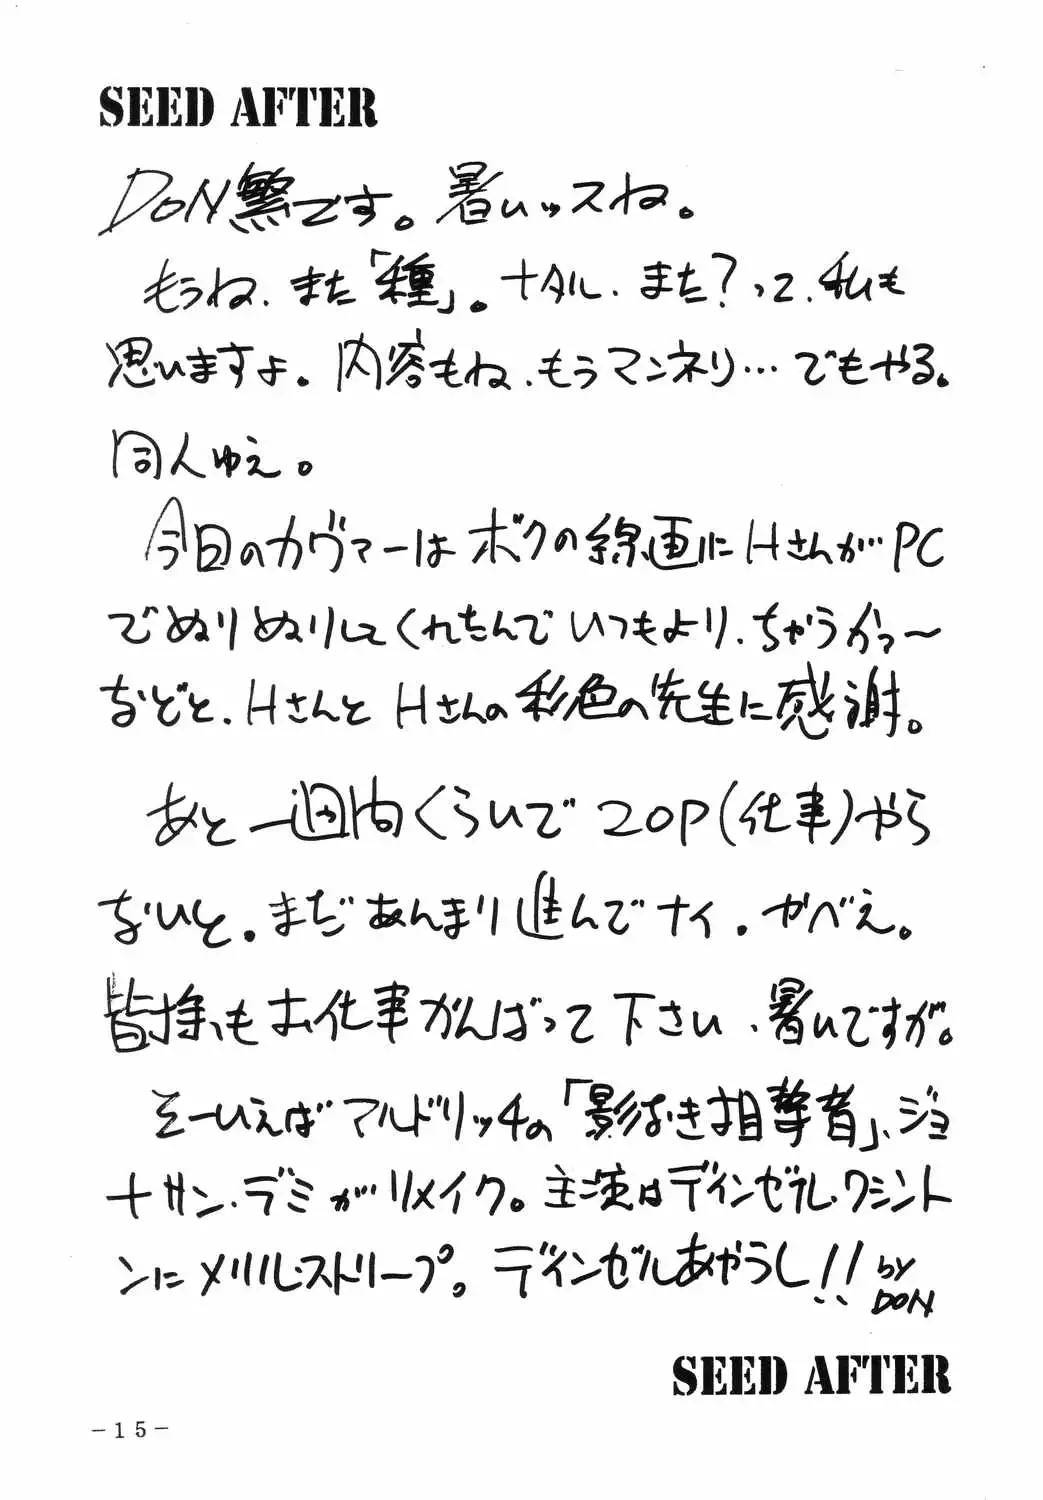 SEED AFTER
DON繁です。暑いッスね。
もうね、また「種」。ナタル、また?って、私も
思いますよ。内容もね、もうマンネリ…でもやる。
同人ゆえ。
今回のカヴァーはボクの線画にHさんがPC
でぬりぬりしてくれたんでいつもより、ちゃうかっ〜
などと、HさんとHさんの彩色の先生に感謝。
あと一週間くらいで20P(仕事)やら
ないと。まだあんまり進んでナイ。がべえ。
皆様もお仕事がんばって下さい、暑いですが。
そーいえばマルドリッチの「影なき狙撃者」、ジョ
ナサン・デミがリメイク。主演はデインゼル・ワシント
ンにメリル・ストリープ。デインゼルあやうし!!by
DON
SEED AFTER
-15-